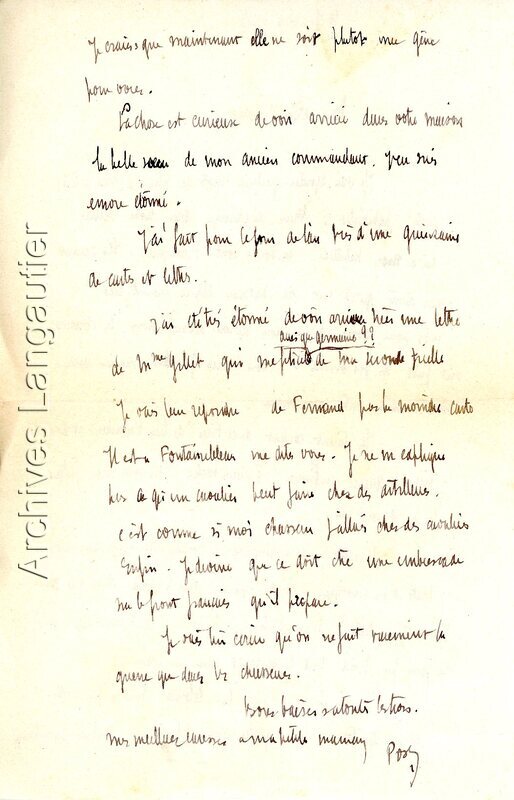 Je crains que maintenant elle ne soit plutôt une gêne
pour vous.
La chose est curieuse de voir arriver dans votre maison
la belle sœur de mon ancien commandant. J'en suis
encore étonné.
J'ai fait pour le jour de l'an près d'une quinzaine
de cartes et lettres.
J'ai été très étonné de voir arriver hier une lettre
ainsi que Germaine ??
de Mme Gillet qui me félicite de ma seconde ficelle
Je vais leur répondre de Fernand pas la moindre carte
Il est à Fontainebleau me dites vous. Je ne m'explique
pas ce qu'un cavalier peut faire chez des artilleurs.
c'est comme si moi chasseur j'allais chez des cavaliers
Enfin. Je devine que ce doit être une embuscade
sur le front français qu'il prépare.
Je vais lui écrire qu'on ne fait vraiment la
guerre que dans les chasseurs.
Bons baisers à toutes les trois.
mes meilleures caresses à ma petite maman
Archives Langautier